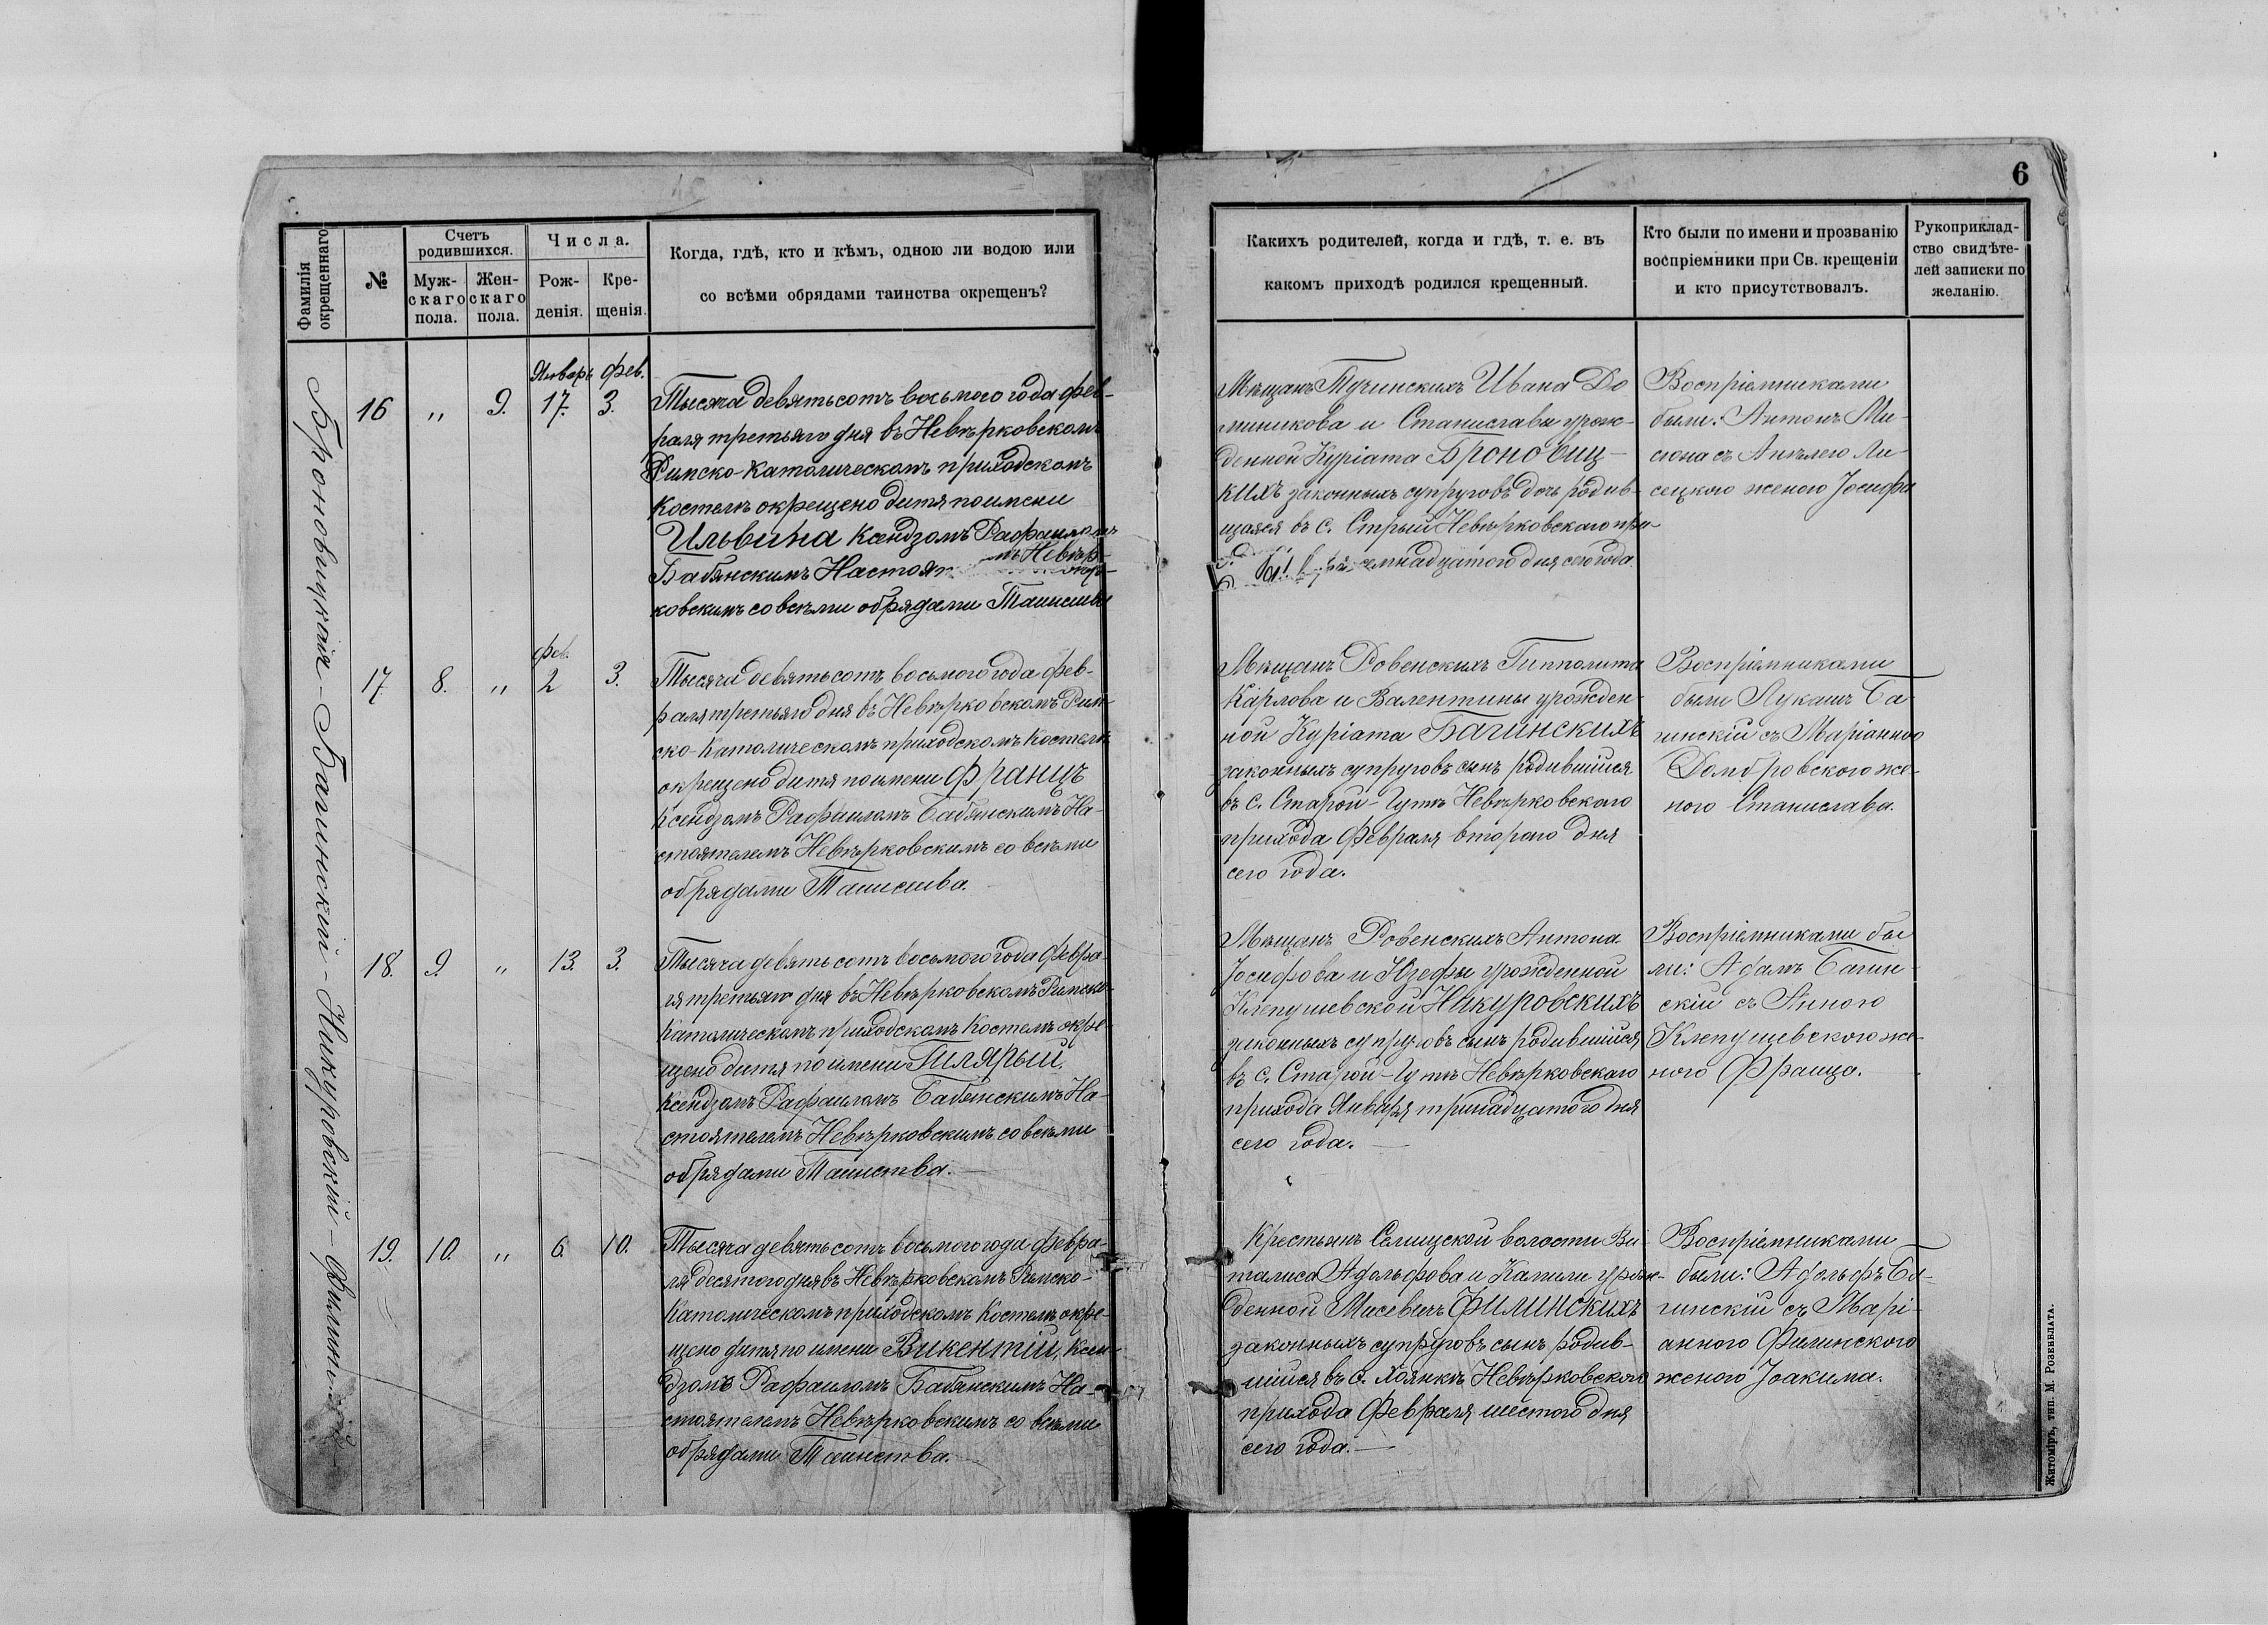 6
Фамилія окрещеннаго
№
Счетъ родившихся.
Муж-скаго пола.
Жен-скаго пола.
Числа.
Рож-денія.
Кре-щенія.
Когда, гдѣ, кто и кѣмъ, одною ли водою или
со всѣми обрядами таинства окрещенъ?
Какихъ родителей, когда и гдѣ, т. е. въ
какомъ приходѣ родился крещенный.
Кто были по имени и прозванію
воспріемники при Св. крещеніи
и кто присутствовалъ.
Рукоприклад-
ство свидѣте-
лей записки по
желанію.
Броновицкая – Багинскій – Никуровскій –
Январь фев.
16 " 9. 17. 3.
Тысяча девятьсотъ восьмого года фев-
раля третьяго дня въ Невѣрковскомъ
Римско-Католическомъ приходскомъ
Костелѣ окрещено дитя по имени
Ильвина Ксендзомъ Рафаиломъ
Бабянскимъ Невѣр-
ковскимъ со всѣми обрядами Таинства
Мѣщанъ Тучинскихъ Ивана До
миникова и Станиславы урож-
денной Куріата Броновиц-
кихъ законныхъ супруговъ дочь родив-
щаяся въ с. Стрый Невѣрковскаго при-
дня сего года
Воспріемниками
были: Антонъ Ми-
сюна съ Анѣлею Ли-
сецкою женою Іосифа
фев.
17 8. " 2 3.
Тысяча девятьсотъ восьмого года фев-
раля третьяго дня въ Невѣрковскомъ Рим-
ско-Католическомъ приходскомъ Костелѣ
окрещено дитя по имени Францъ
Ксендзомъ Рафаиломъ Бабянскимъ На-
стоятелемъ Невѣрковскимъ со всѣми
обрядами Таинства.
Мѣщанъ Ровенскихъ Гипполита
Карлова и Валентины урожден-
ной Куріата Багинскихъ
законныхъ супруговъ сынъ родившійся
въ с. Старой-Гутѣ Невѣрковскаго
прихода Февраля второго дня
сего года.
Воспріемниками
были Лукашъ Ба
гинскій съ Маріанною
Домбровскою же-
ною Станислава.
18. 9. " 13. 3.
Тысяча девятьсотъ восьмого года Февра-
ля третьяго дня въ Невѣрковскомъ Римско-
Католическомъ приходскомъ Костелѣ окре-
щено дитя по имени Гилярый,
Ксендзомъ Рафаиломъ Бабянскимъ На-
стоятелемъ Невѣрковскимъ со всѣми
обрядами Таинства.
Мѣщанъ Ровенскихъ Антона
Іосифова и Юзефы урожденной
Клепушевской Никуровскихъ
законныхъ супруговъ сынъ родившійся
въ с. Старой-Гутѣ Невѣрковскаго
прихода Января тринадцатого дня
сего года.
Воспріемниками бы
ли: Адамъ Багин-
скій съ Анною
Клепушевскою же-
ною Франца.
19. 10. " 6. 10.
Тысяча девятьсотъ восьмого года Февра-
ля десятого дня въ Невѣрковскомъ Римско-
Католическомъ приходскомъ Костелѣ окре-
щено дитя по имени Викентій, Ксен-
дзомъ Рафаиломъ Бабянскимъ На-
стоятелемъ Невѣрковскимъ со всѣми
обрядами Таинства.
Крестьянъ Селищской волости Ви-
талиса Адольфова и Камили урож-
денной Мисевичъ Филинскихъ
законныхъ супруговъ сынъ родив-
шійся въ с. Хоянкѣ Невѣрковскаго
прихода Февраля шестого дня
сего года.
Воспріемниками
были: Адольфъ Ба-
гинскій съ Марі-
анною Филинскою
женою Іоакима.
Житоміръ, тип. М. Розенблата.